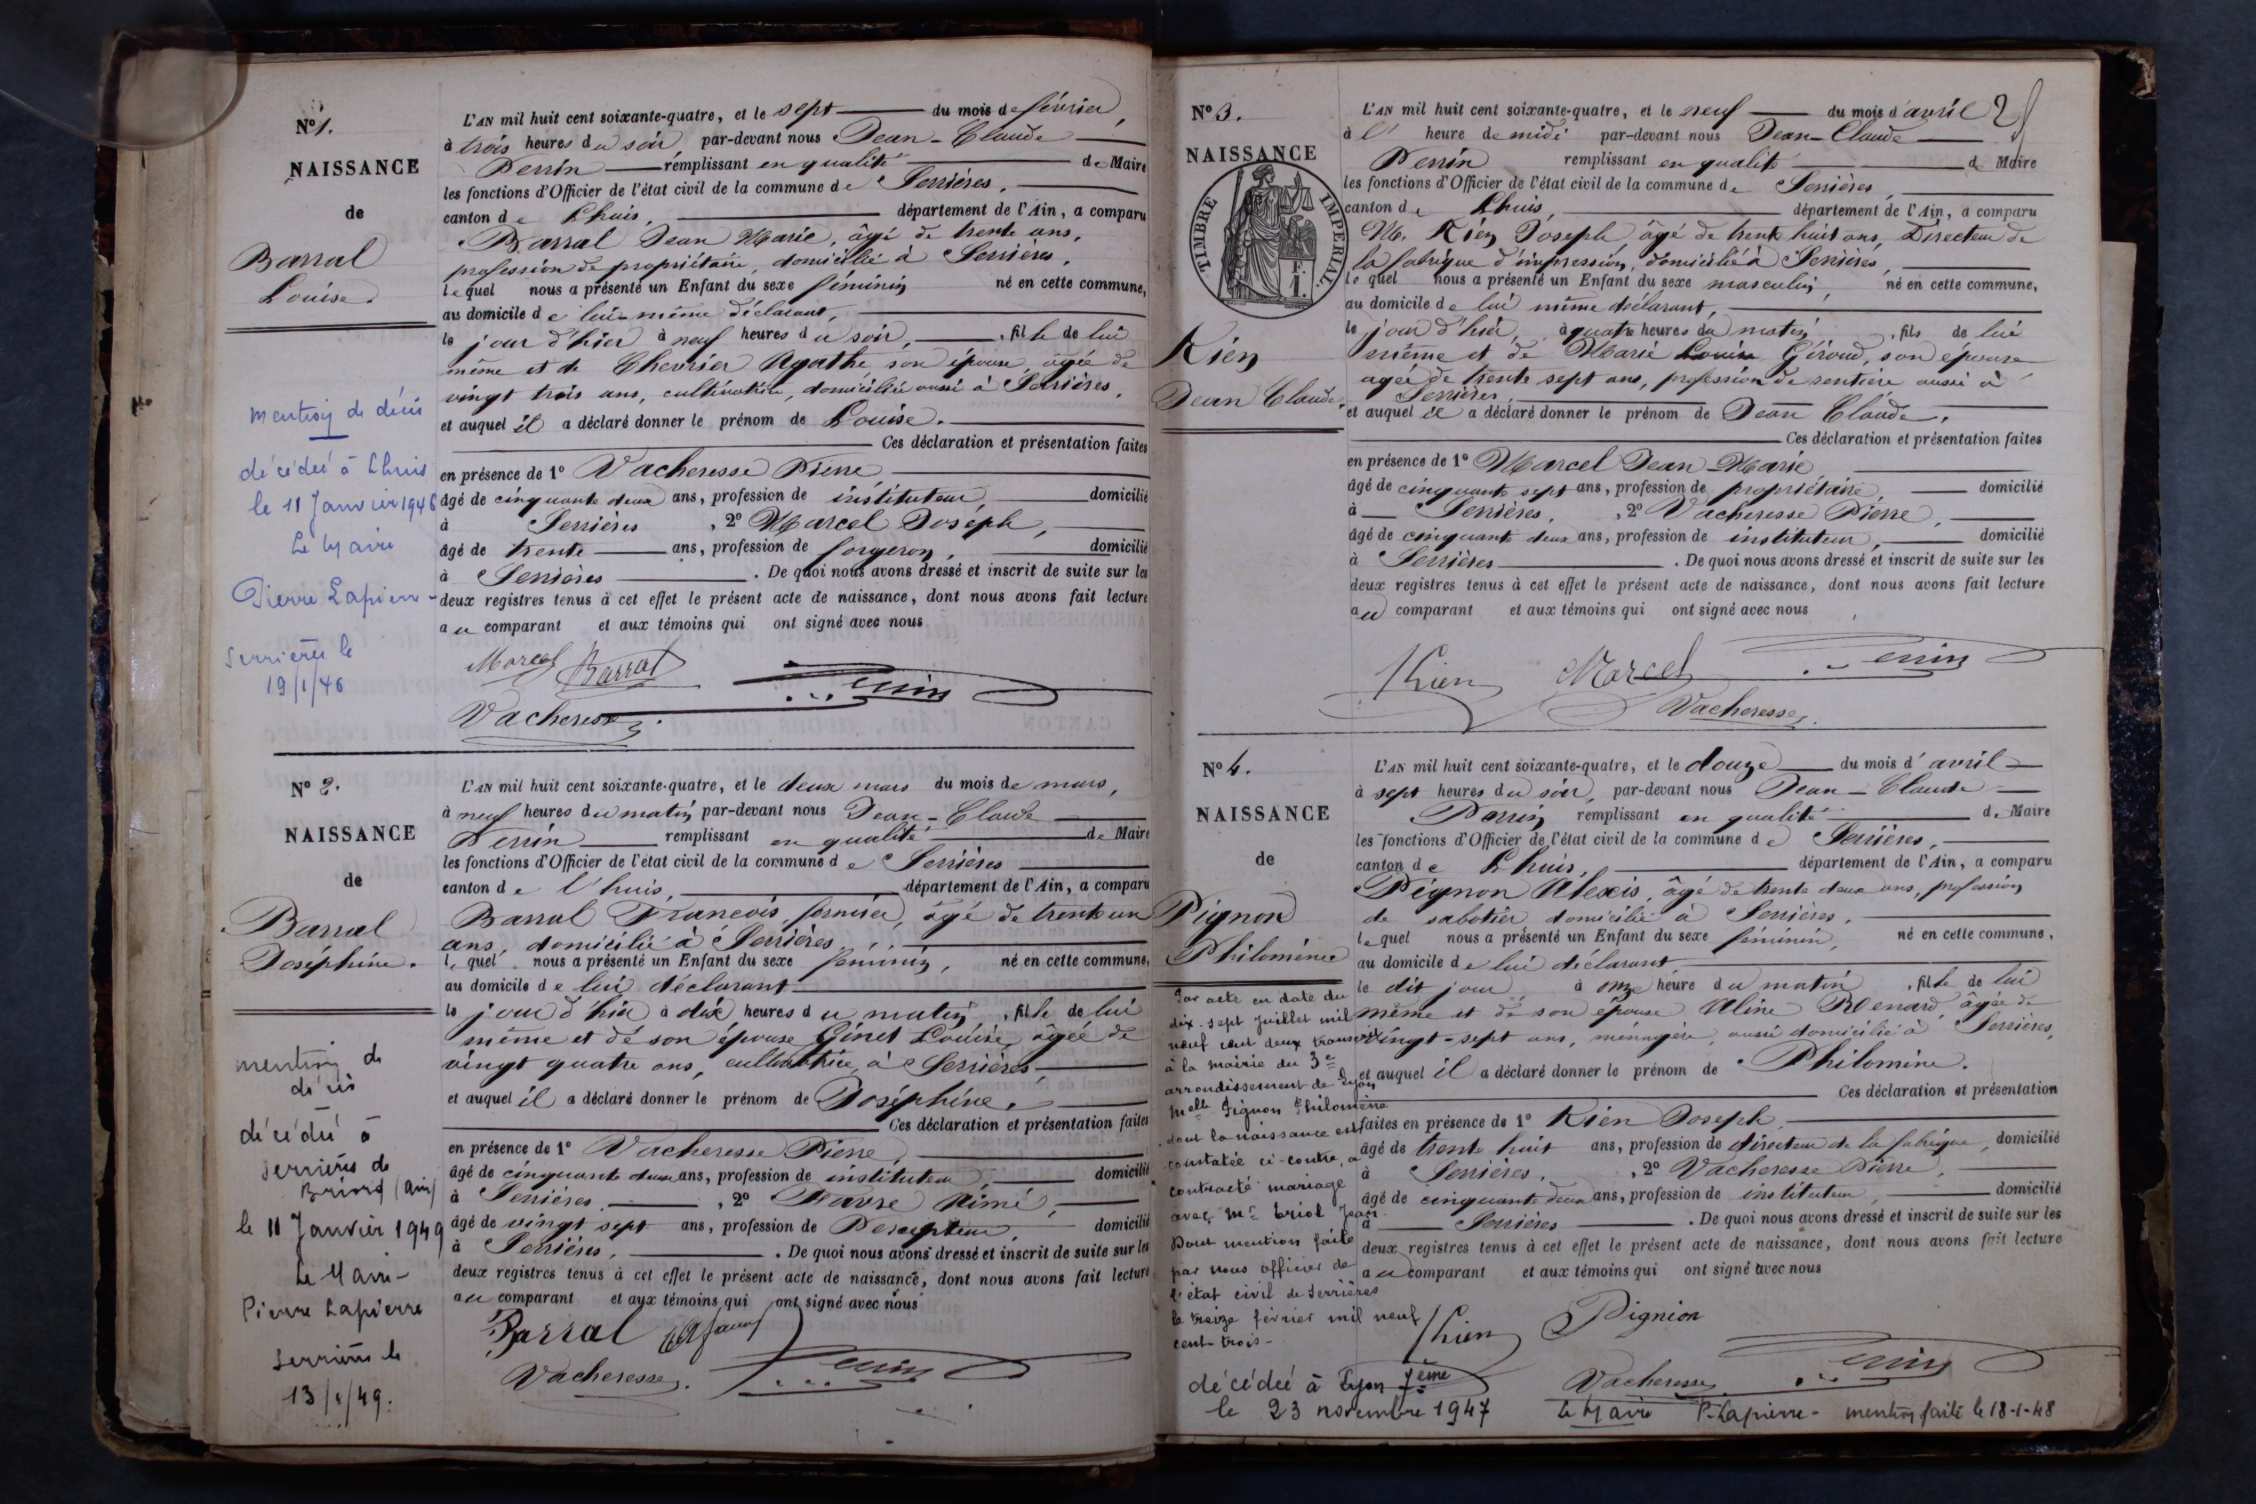 N° 1.
NAISSANCE
de
Barral
Louise.
mention de décès
décédée à Lhuis
le 11 Janvier 1946
Le Maire
Pierre Lapierre
Serrières le
19/1/46
L'AN mil huit cent soixante-quatre, et le sept du mois de février,
à trois heures du soir par-devant nous Jean-Claude
Perrin remplissant en qualité de Maire
les fonctions d'Officier de l'état civil de la commune de Serrières,
canton de Lhuis, département de l'Ain, a comparu
Barral Jean Marie, âgé de trente ans,
profession de propriétaire, domicilié à Serrières,
lequel nous a présenté un Enfant du sexe féminin né en cette commune,
au domicile de lui-même déclarant,
le jour d'hier à neuf heures du soir, fille de lui
même et de Chevrier Agathe son épouse, âgée de
vingt trois ans, cultivatrice, domiciliée aussi à Serrières,
et auquel il a déclaré donner le prénom de Louise.
Ces déclaration et présentation faites
en présence de 1° Vacheresse Pierre
âgé de cinquante deux ans, profession de instituteur, domicilié
à Serrières, 2° Marcel Joseph,
âgé de trente ans, profession de forgeron, domicilié
à Serrières. De quoi nous avons dressé et inscrit de suite sur les
deux registres tenus à cet effet le présent acte de naissance, dont nous avons fait lecture
au comparant et aux témoins qui ont signé avec nous
Marcel Barral Perrin
Vacheresse
N° 2.
NAISSANCE
de
Barral
Joséphine.
mention de
décès
décédée à
Serrières de
Briord (Ain)
le 11 Janvier 1949
Le Maire
Pierre Lapierre
Serrières le
13/1/49.
L'AN mil huit cent soixante-quatre, et le deux mars du mois de mars,
à neuf heures du matin par-devant nous Jean-Claude
Perrin remplissant en qualité de Maire
les fonctions d'Officier de l'état civil de la commune de Serrières
canton de l'huis, département de l'Ain, a comparu
Barral François, fermier, âgé de trente un
ans, domicilié à Serrières,
lequel nous a présenté un Enfant du sexe féminin, né en cette commune,
au domicile de lui déclarant
le jour d'hier à dix heures du matin, fille de lui
même et de son épouse Ginet Louise, âgée de
vingt quatre ans, cultivatrice, à Serrières,
et auquel il a déclaré donner le prénom de Joséphine.
Ces déclaration et présentation faites
en présence de 1° Vacheresse Pierre,
âgé de cinquante deux ans, profession de instituteur, domicilié
à Serrières, 2° Aimé,
âgé de vingt sept ans, profession de Percepteur, domicilié
à Serrières. De quoi nous avons dressé et inscrit de suite sur les
deux registres tenus à cet effet le présent acte de naissance, dont nous avons fait lecture
au comparant et aux témoins qui ont signé avec nous
Barral
Vacheresse. Perrin
N° 3.
NAISSANCE
TIMBRE IMPERIAL
F.
1.
Kien
Jean Claude.
L'AN mil huit cent soixante-quatre, et le neuf du mois d'avril
à l' heure de midi par-devant nous Jean-Claude
Perrin remplissant en qualité de Maire
les fonctions d'Officier de l'état civil de la commune de Serrières,
canton de Lhuis, département de l'Ain, a comparu
M. Kien Joseph, âgé de trente huit ans, Directeur de
la fabrique d'impression, domicilié à Serrières,
lequel nous a présenté un Enfant du sexe masculin, né en cette commune,
au domicile de lui même déclarant,
le jour d'hier, à quatre heures du matin, fils de lui
même et de Marie Louise Giroud, son épouse
âgée de trente sept ans, profession de rentière aussi à
Serrières,
et auquel il a déclaré donner le prénom de Jean Claude.
Ces déclaration et présentation faites
en présence de 1° Marcel Jean-Marie,
âgé de cinquante sept ans, profession de propriétaire, domicilié
à Serrières, 2° Vacheresse Pierre,
âgé de cinquante deux ans, profession de instituteur, domicilié
à Serrières. De quoi nous avons dressé et inscrit de suite sur les
deux registres tenus à cet effet le présent acte de naissance, dont nous avons fait lecture
au comparant et aux témoins qui ont signé avec nous
Kien Marcel Perrin
Vacheresse.
N° 4.
NAISSANCE
de
Pignon
Philomène
Par acte en date du
dix-sept Juillet mil
neuf cent deux transcrit
à la mairie du 3e
arrondissement de Lyon
Melle Pignon Philomène
dont la naissance est
constatée ci-contre, a
contracté mariage
avec Mr Jean
Dont mention faite
par nous officier de
l'état civil de Serrières
le treize février mil neuf
cent trois-
décédée à Lyon 7ème
le 23 novembre 1947
L'AN mil huit cent soixante-quatre, et le douze du mois d'avril
à sept heures du soir, par-devant nous Jean-Claude
Perrin remplissant en qualité de Maire
les fonctions d'Officier de l'état civil de la commune de Serrières,
canton de Lhuis, département de l'Ain, a comparu
Pignon Alexis, âgé de trente deux ans, profession
de sabotier domicilié à Serrières,
lequel nous a présenté un Enfant du sexe féminin, né en cette commune,
au domicile de lui déclarant,
le dit jour à onze heure du matin, fille de lui
même et de son épouse Aline Renard, âgée de
vingt-sept ans, ménagère, aussi domiciliée à Serrières,
et auquel il a déclaré donner le prénom de Philomène.
Ces déclaration et présentation
faites en présence de 1° Kien Joseph,
âgé de trente huit ans, profession de directeur de la fabrique, domicilié
à Serrières, 2° Vacheresse Pierre,
âgé de cinquante deux ans, profession de instituteur, domicilié
à Serrières. De quoi nous avons dressé et inscrit de suite sur les
deux registres tenus à cet effet le présent acte de naissance, dont nous avons fait lecture
au comparant et aux témoins qui ont signé avec nous
Kien Pignion
Vacheresse Perrin
Le Maire P. Lapierre - mention faite le 18-1-48